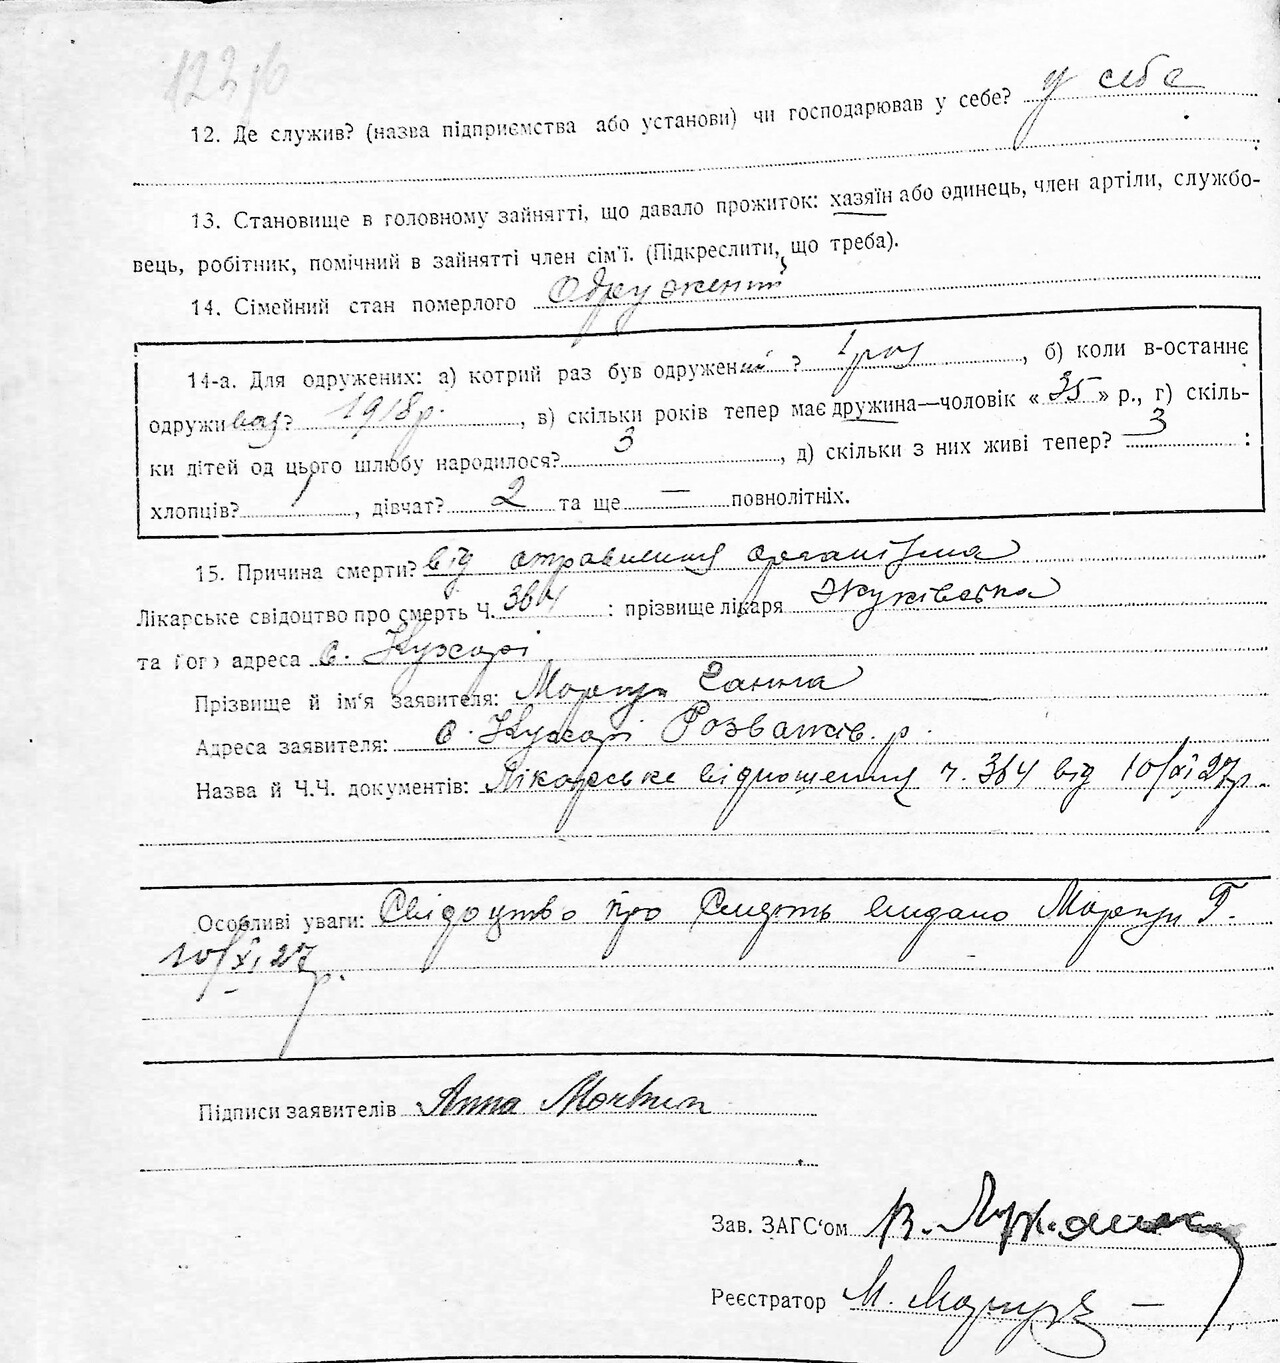 12. Де служив? (назва підприємства або установи) чи господарював у себе? у себе
13. Становище в головному зайнятті, що давало прожиток: хазяїн або одинець, член артіли, службо-
вець, робітник, помічний в зайнятті член сім'ї. (Підкреслити, що треба).
14. Сімейний стан померлого Одружений
14-а. Для одружених: а) котрий раз був одружений? 1 раз, б) коли в-останнє
одруживвсь? 1918 р., в) скільки років тепер має дружина—чоловік «35» р., г) скіль-
ки дітей од цього шлюбу народилося? 3, д) скільки з них живі тепер? 3 :
хлопців? 1, дівчат? 2 та ще — повнолітніх.
15. Причина смерти? від отравлення організма
Лікарське свідоцтво про смерть Ч. 364 : прізвище лікаря Жуківська
та його адреса с. Кухарі
Прізвище й ім'я заявителя:
Адреса заявителя: с. Кухарі Розважів. р.
Назва й Ч.Ч. документів: Лікарське відношення ч. 364 від 10/XI 27р.
Особливі уваги: Свідоцтво про смерть видано Г.
10/XI 27 р.
Підписи заявителів Anna
Зав. ЗАГС'ом В.
Реєстратор М.